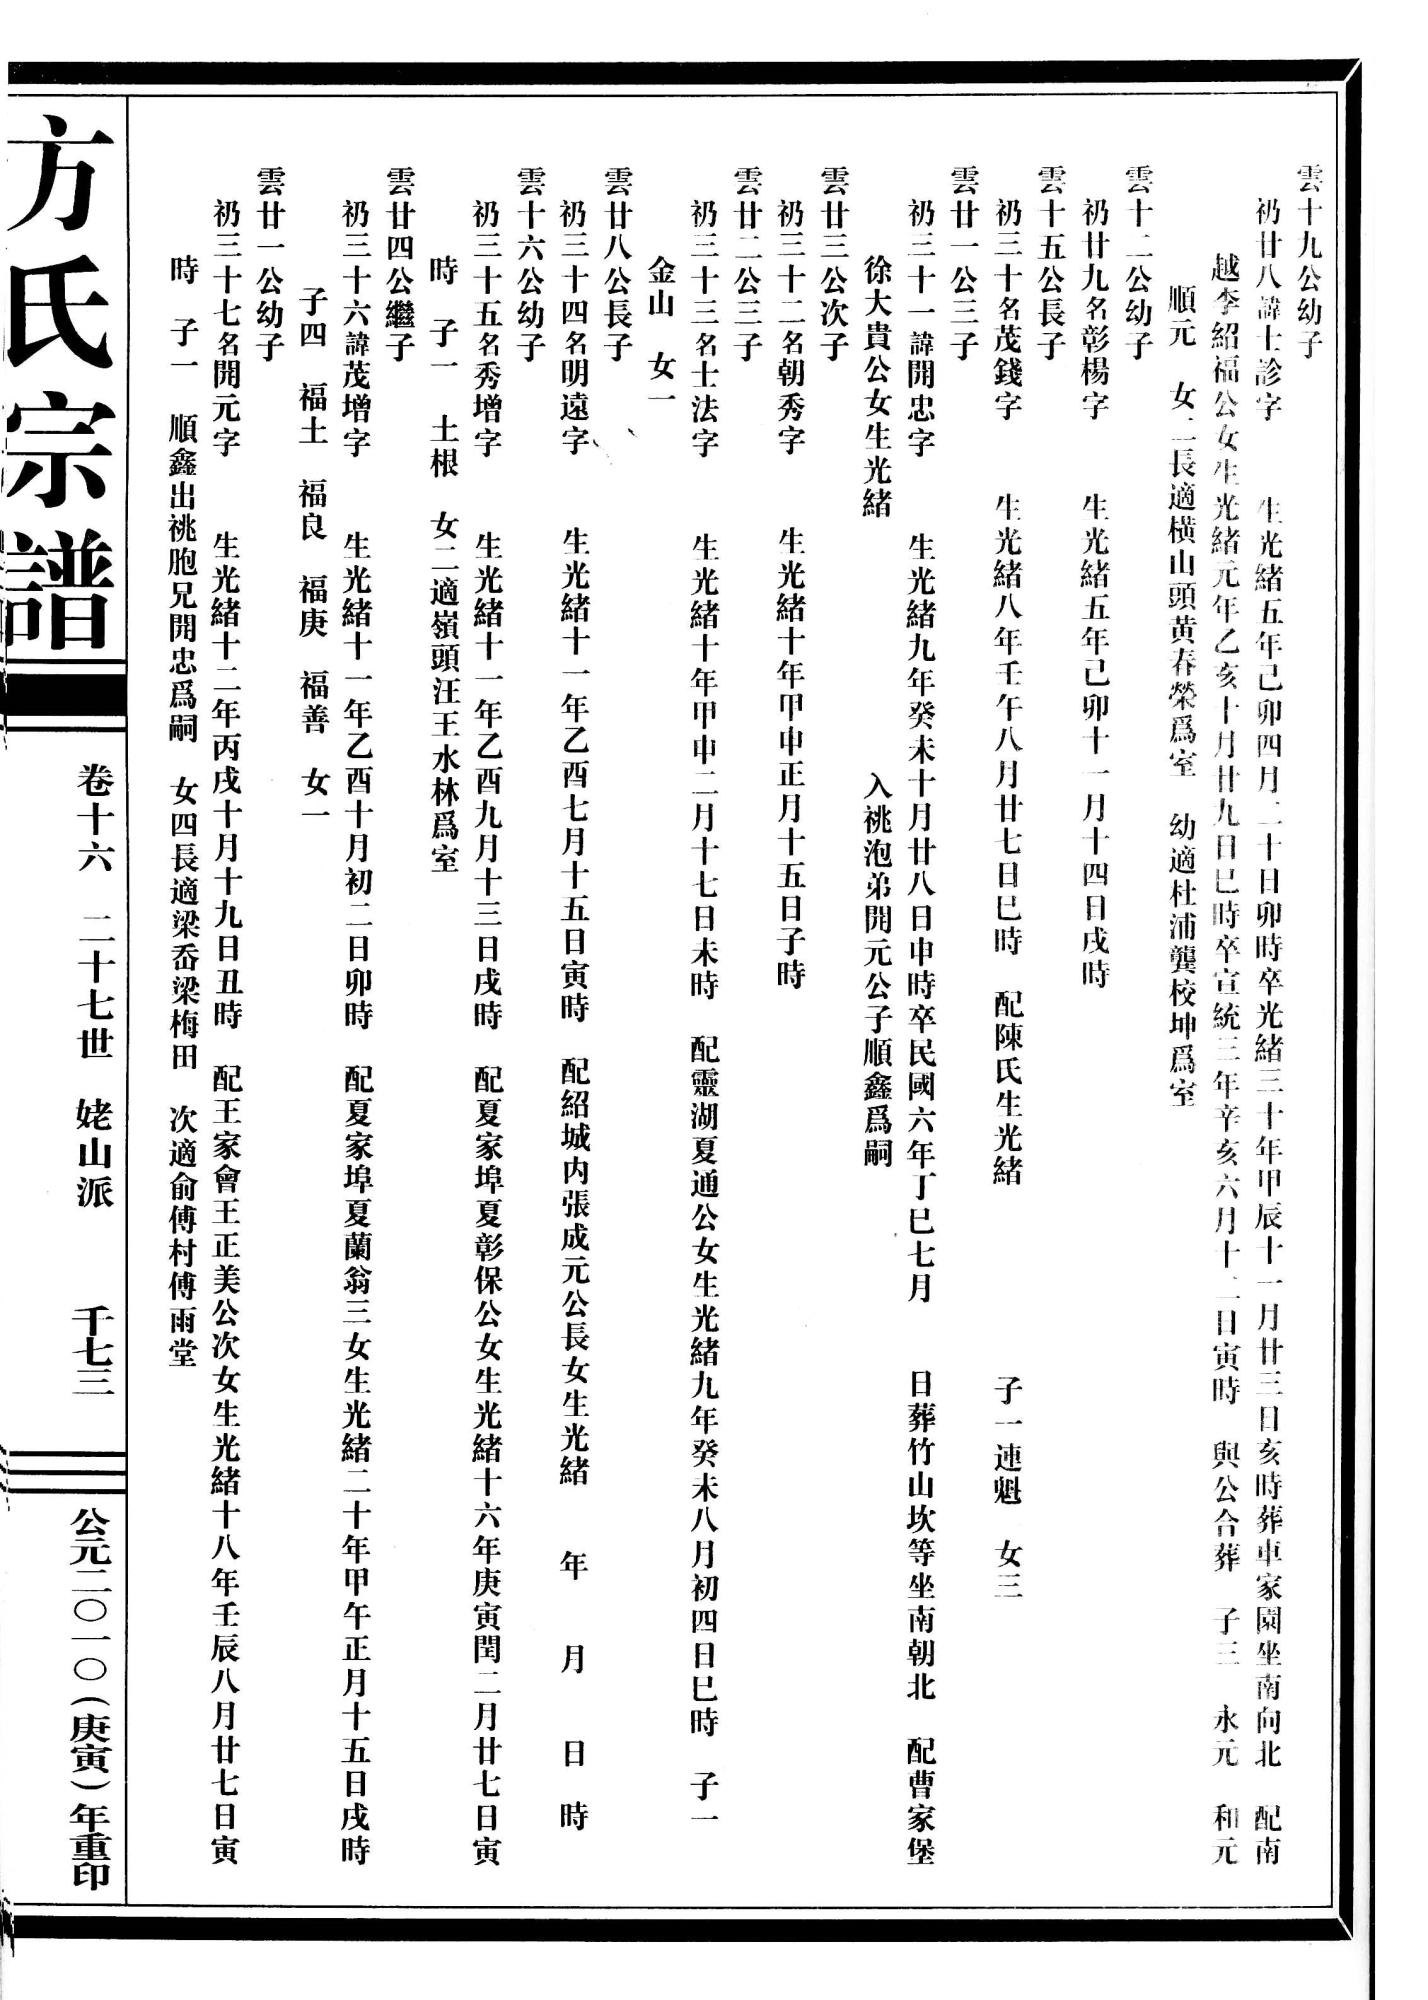 雲十九公幼子
礽廿八諱士診字　生光緒五年己卯四月二十日卯時卒光緒三十年甲辰十一月廿三日亥時葬車家園坐南向北　配南
越李紹福公女生光緒元年乙亥十月廿九日巳時卒宣統三年辛亥六月十二日寅時　與公合葬　子三　永元　和元
順元　女二長適橫山頭黃春榮爲室　幼適杜浦龔校坤爲室
雲十二公幼子
礽廿九名彰楊字　生光緒五年己卯十一月十四日戌時
雲十五公長子
礽三十名茂錢字　生光緒八年壬午八月廿七日巳時　配陳氏生光緒　子一連魁　女三
雲廿一公三子
礽三十一諱開忠字　生光緒九年癸未十月廿八日申時卒民國六年丁巳七月　日葬竹山坎等坐南朝北　配曹家堡
徐大貴公女生光緒　入祧泡弟開元公子順鑫爲嗣
雲廿三公次子
礽三十二名朝秀字　生光緒十年甲申正月十五日子時
雲廿二公三子
礽三十三名士法字　生光緒十年甲申二月十七日未時　配靈湖夏通公女生光緒九年癸未八月初四日巳時　子一
金山　女一
雲廿八公長子
礽三十四名明遠字　生光緒十一年乙酉七月十五日寅時　配紹城内張成元公長女生光緒　年　月　日　時
雲十六公幼子
礽三十五名秀增字　生光緒十一年乙酉九月十三日戌時　配夏家埠夏彰保公女生光緒十六年庚寅閏二月廿七日寅
時　子一　土根　女二適嶺頭汪王水林爲室
雲廿四公繼子
礽三十六諱茂增字　生光緒十一年乙酉十月初二日卯時　配夏家埠夏蘭翁三女生光緒二十年甲午正月十五日戌時
子四　福土　福良　福庚　福善　女一
雲廿一公幼子
礽三十七名開元字　生光緒十二年丙戌十月十九日丑時　配王家會王正美公次女生光緒十八年壬辰八月廿七日寅
時　子一　順鑫出祧胞兄開忠爲嗣　女四長適梁岙梁梅田　次適俞傅村傅雨堂
方氏宗譜
卷十六　二十七世　姥山派　千七三
公元二〇一〇（庚寅）年重印